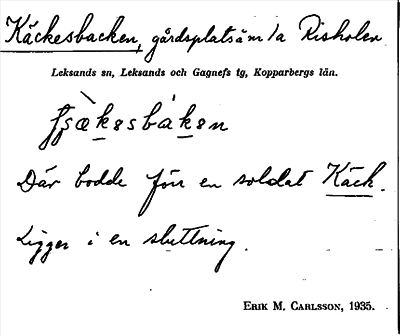 Käckesbacken, gårdsplats i m/a Risholen
Leksands sn, Leksands och Gagnefs tg, Kopparbergs län.
Där bodde förr en soldat Käck.
Ligger i en sluttning.
ERIK M. CARLSSON, 1935.